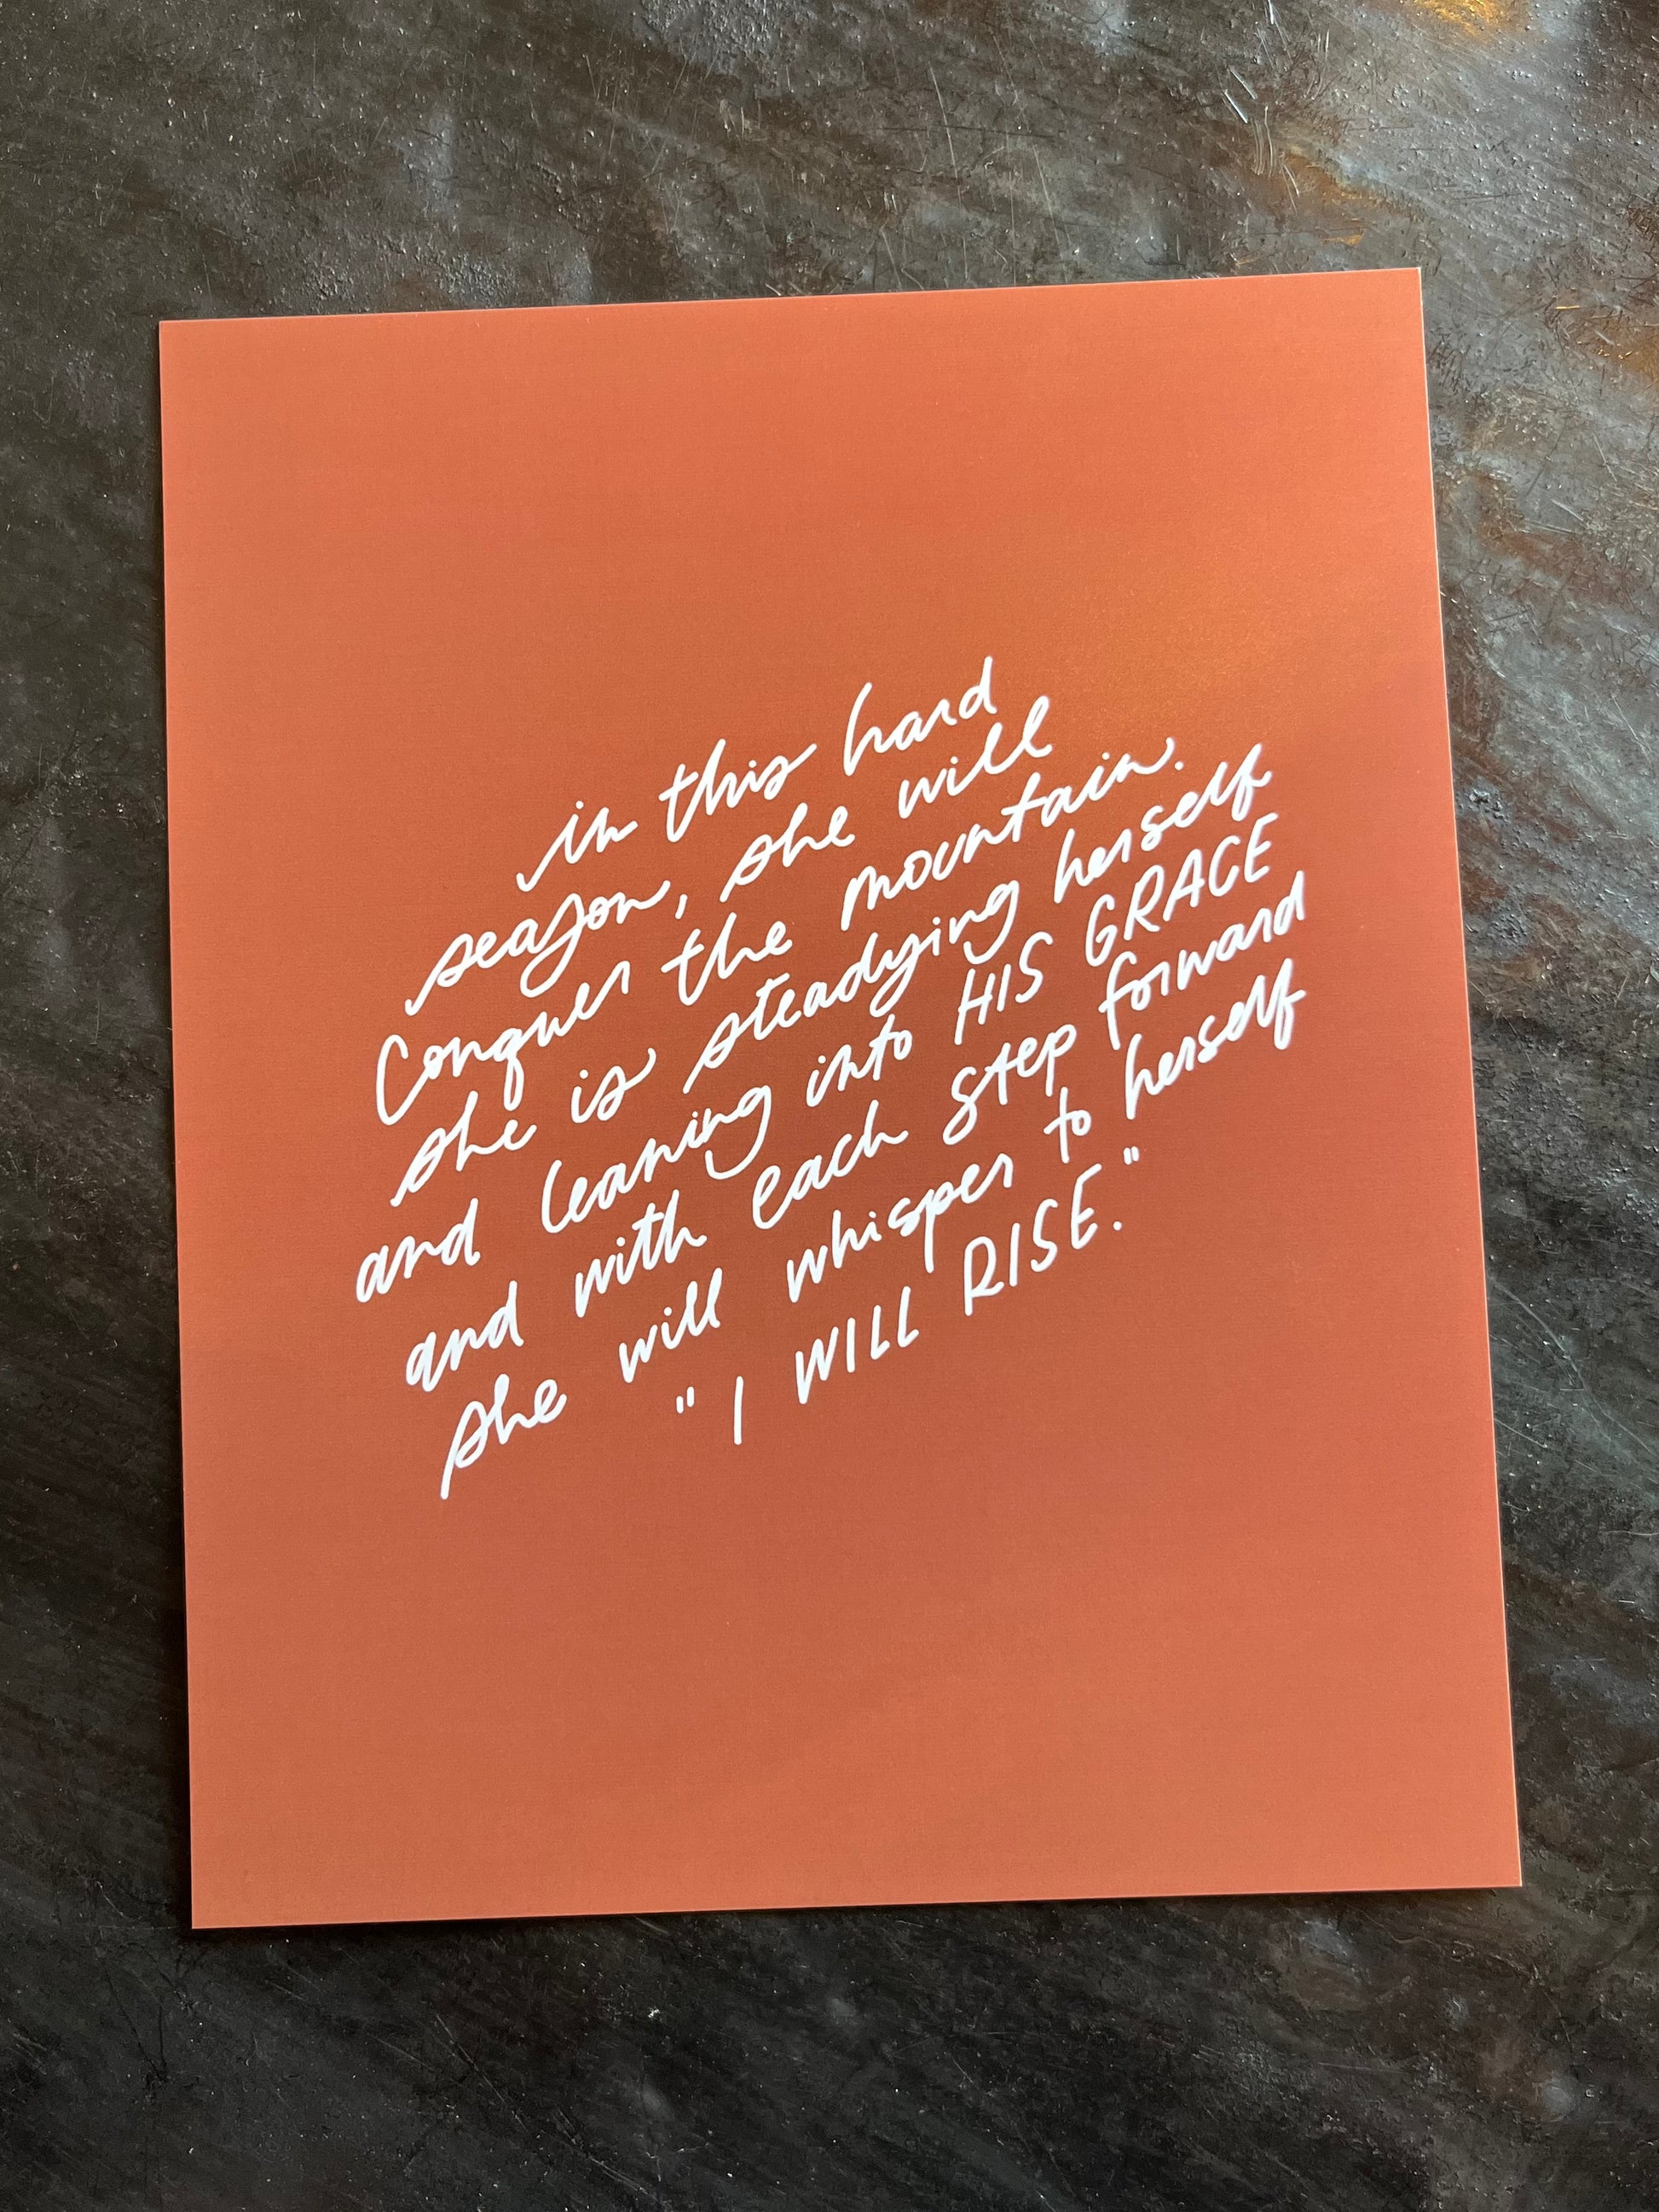 in this hard
season, she will
Conquer the mountain.
she is steadying herself
and leaning into HIS GRACE
and with each step forward
she will whisper to herself
"I WILL RISE."